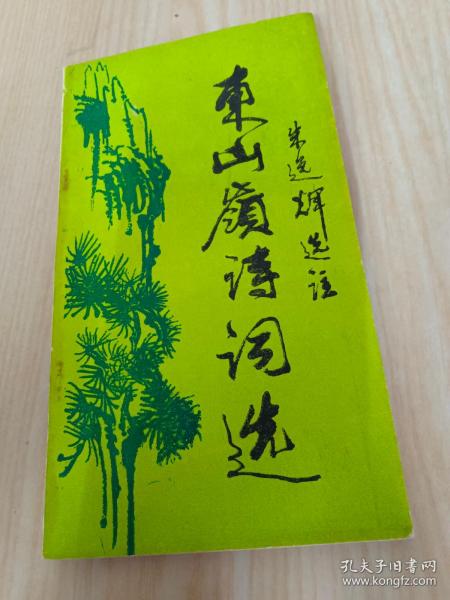 東山嶺诗词选
朱逸辉选注
孔夫子旧书网
www.kongfz.com